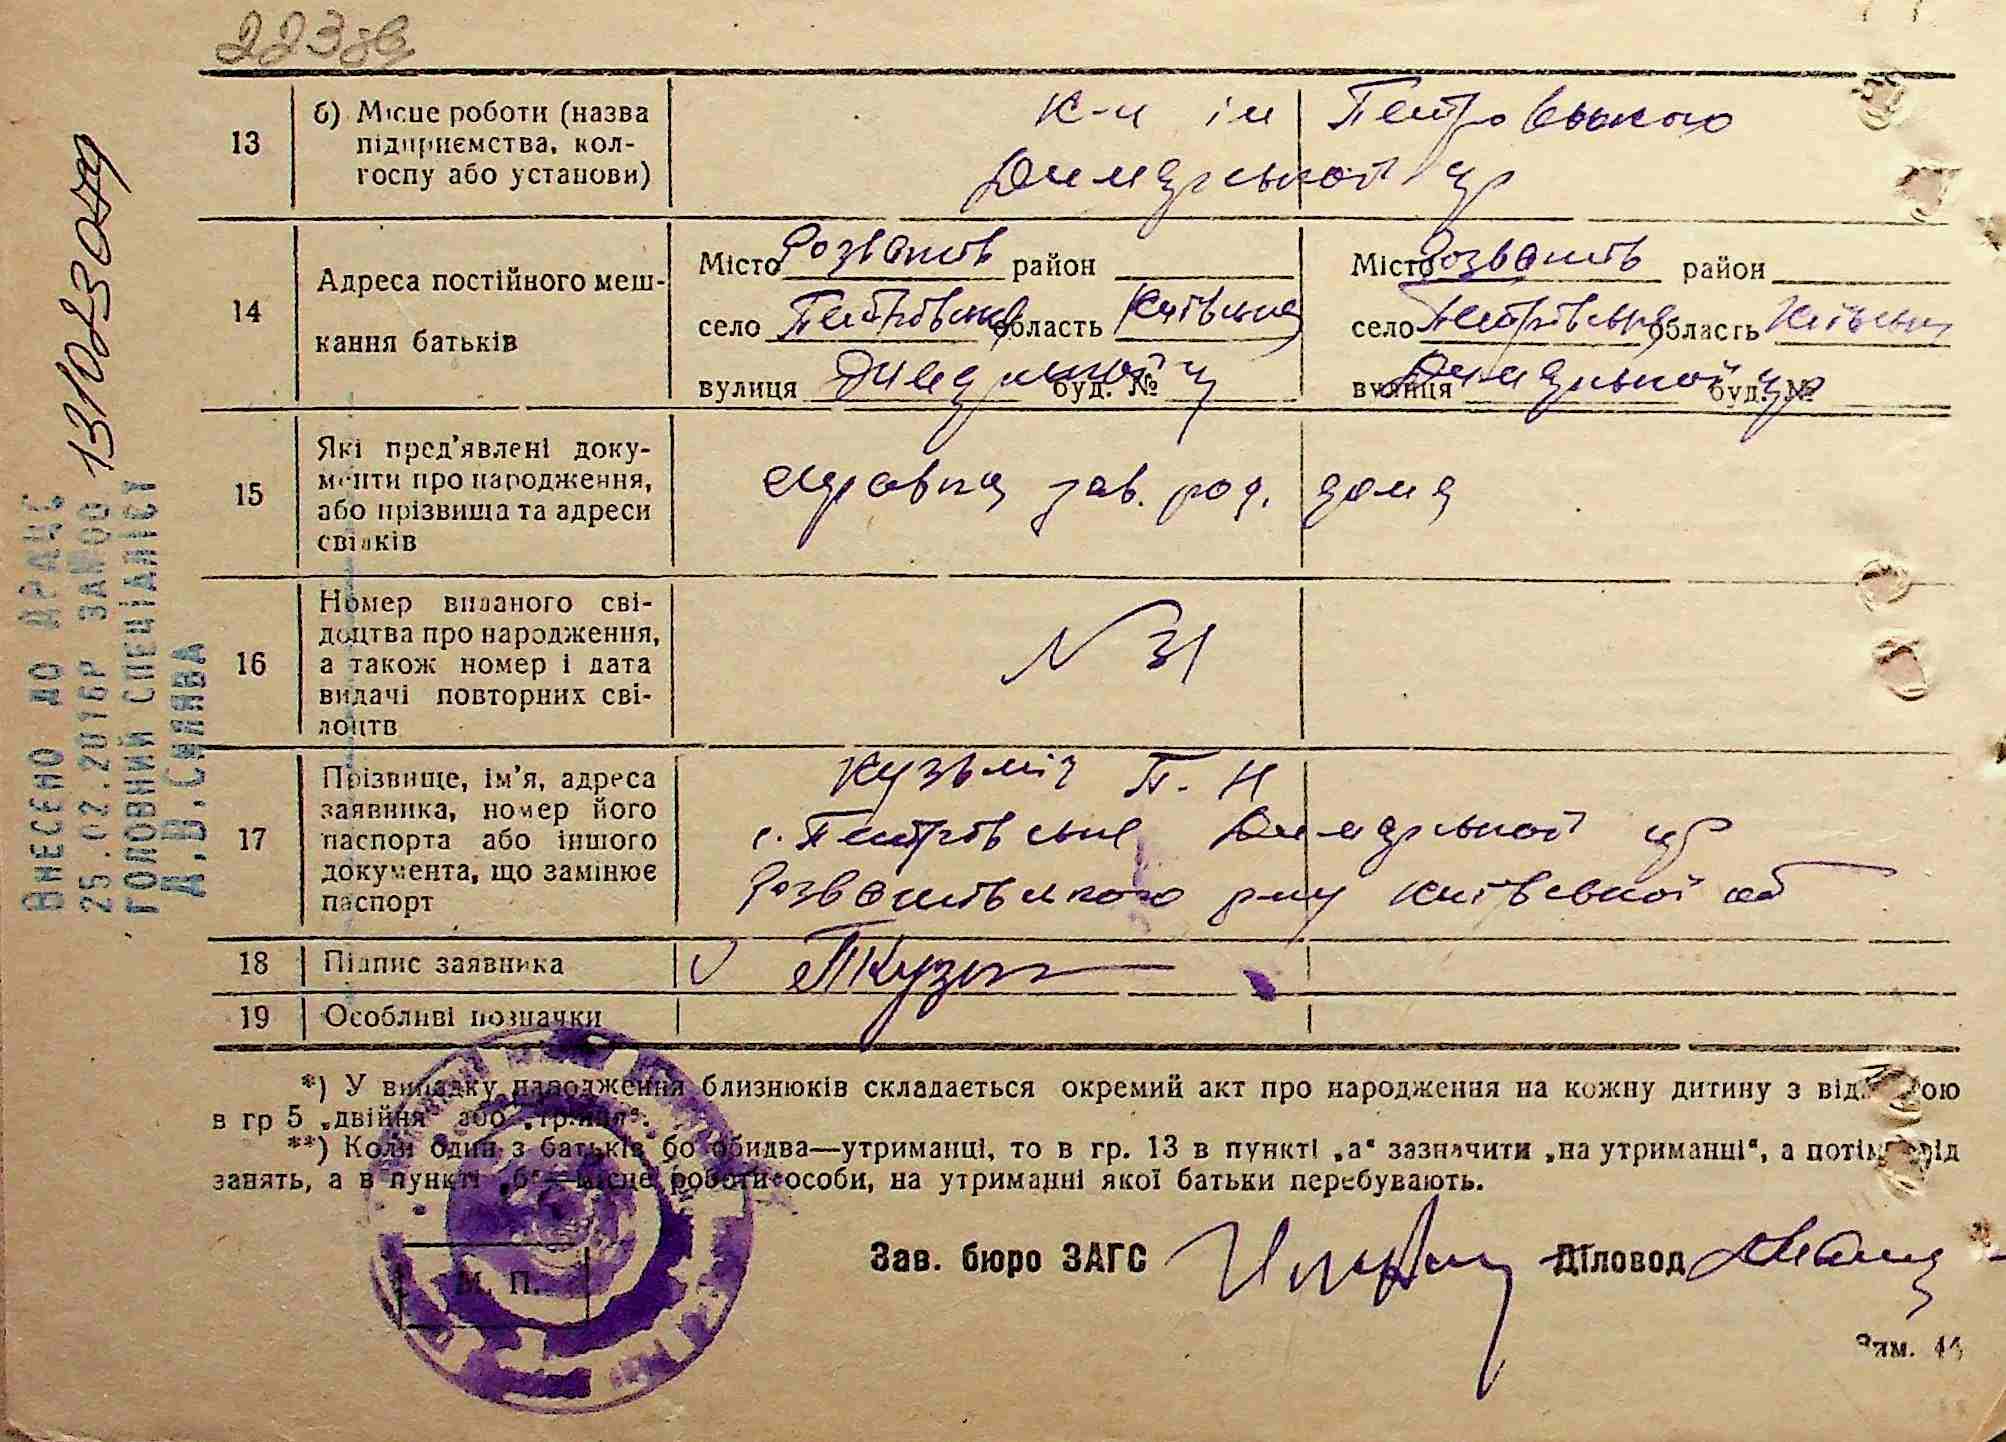 223зв
13
б) Місце роботи (назва
підприємства, кол-
госпу або установи)
к-п ім Петровського
Димарської ц/р
14
Адреса постійного меш-
кання батьків
Місто Розваж район
село Петрівське область Київська
вулиця Димарської буд. №
Місто Розваж район
село Петрівське область Київськ
вулиця Димарської буд. №
15
Які пред'явлені доку-
менти про народження,
або прізвища та адреси
свідків
справка зав. род. дома
16
Номер виданого сві-
доцтва про народження,
а також номер і дата
видачі повторних сві-
доцтв
N 31
17
Прізвище, ім'я, адреса
заявника, номер його
паспорта або іншого
документа, що замінює
паспорт
Кузьміч П. Н
с. Петрівське Димарської
р-ну Київської об
18
Підпис заявника
19
Особливі позначки
*) У випадку народження близнюків складається окремий акт про народження на кожну дитину з відміткою
в гр 5 „двійня" або „трійня".
**) Коли один з батьків бо обидва—утриманці, то в гр. 13 в пункті „а" зазначити „на утриманні", а потім рід
занять, а в пункті „б"—місце роботи особи, на утриманні якої батьки перебувають.
М. П.
Зав. бюро ЗАГС
Діловод
Зам. 44
ВНЕСЕНО ДО ДРАЦС
25.02.2016Р ЗА №00 131023049
ГОЛОВНИЙ СПЕЦІАЛІСТ
Д.В.СИЛЯВА